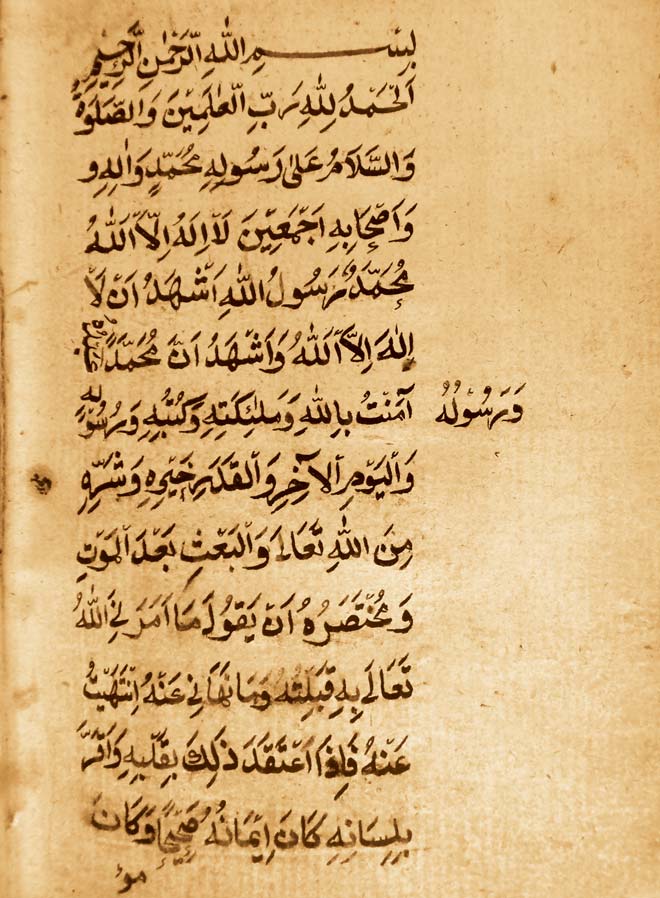 بِسْــــمِ اللّٰهِ الرَّحْمٰنِ الرَّحِيمِ
اَلْحَمْدُ لِلّٰهِ رَبِّ الْعٰلَمِيْنَ وَالصَّلٰوةُ
وَالسَّلَامُ عَلٰى رَسُولِهِ مُحَمَّدٍ وَاٰلِهِ و
وَاَصْحَابِهِ اَجْمَعِيْنَ لَآ اِلٰهَ اِلَّا اللّٰهُ
مُحَمَّدٌ رَسُولُ اللّٰهِ اَشْهَدُ اَنْ لَآ
اِلٰهَ اِلَّا اللّٰهُ وَاَشْهَدُ اَنَّ مُحَمَّدًا عَبْدُهُ
وَرَسُوْلُهُ
آمَنْتُ بِاللّٰهِ وَمَلٰئِكَتِهِ وَكُتُبِهِ وَرُسُوْلِهِ
وَالْيَوْمِ الْآخِرِ وَالْقَدَرِ خَيْرِهِ وَشَرِّهِ
مِنَ اللّٰهِ تَعَالٰى وَالْبَعْثِ بَعْدَ الْمَوْتِ
وَمُخْتَصَرُهُ اَنْ يَقُولَ مَا اَمَرَنِي اللّٰهُ
تَعَالٰى بِهِ قَبِلْتُهُ وَمَا نَهَانِي عَنْهُ اِنْتَهَيْتُ
عَنْهُ فَاِذَا اعْتَقَدَ ذٰلِكَ بِقَلْبِهِ وَاَقَرَّ
بِلِسَانِهِ كَانَ اِيْمَانُهُ صَحِيْحًا وَكَانَ
مؤ